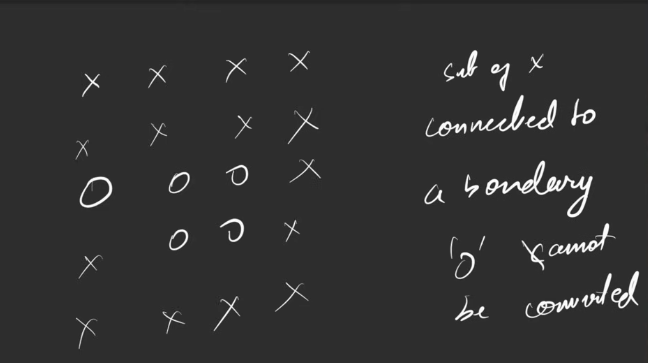 x x x x
x x x x
O O O x
x O O x
x x x x
sub of x
connected to
a bondary
'O' cannot
be converted